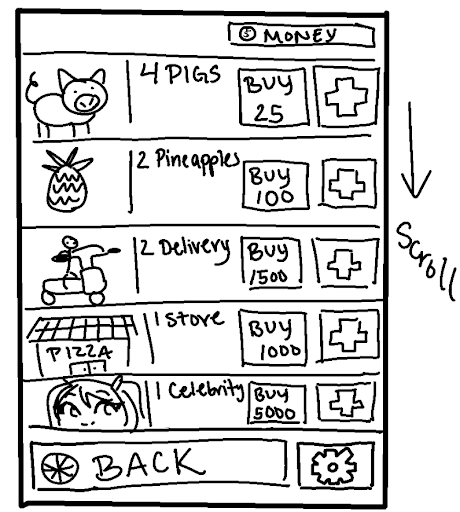 MONEY
4 PIGS
BUY
25
2 Pineapples
BUY
100
2 Delivery
BUY
1500
1 Store
BUY
1000
PIZZA
1 Celebrity
BUY
5000
BACK
Scroll